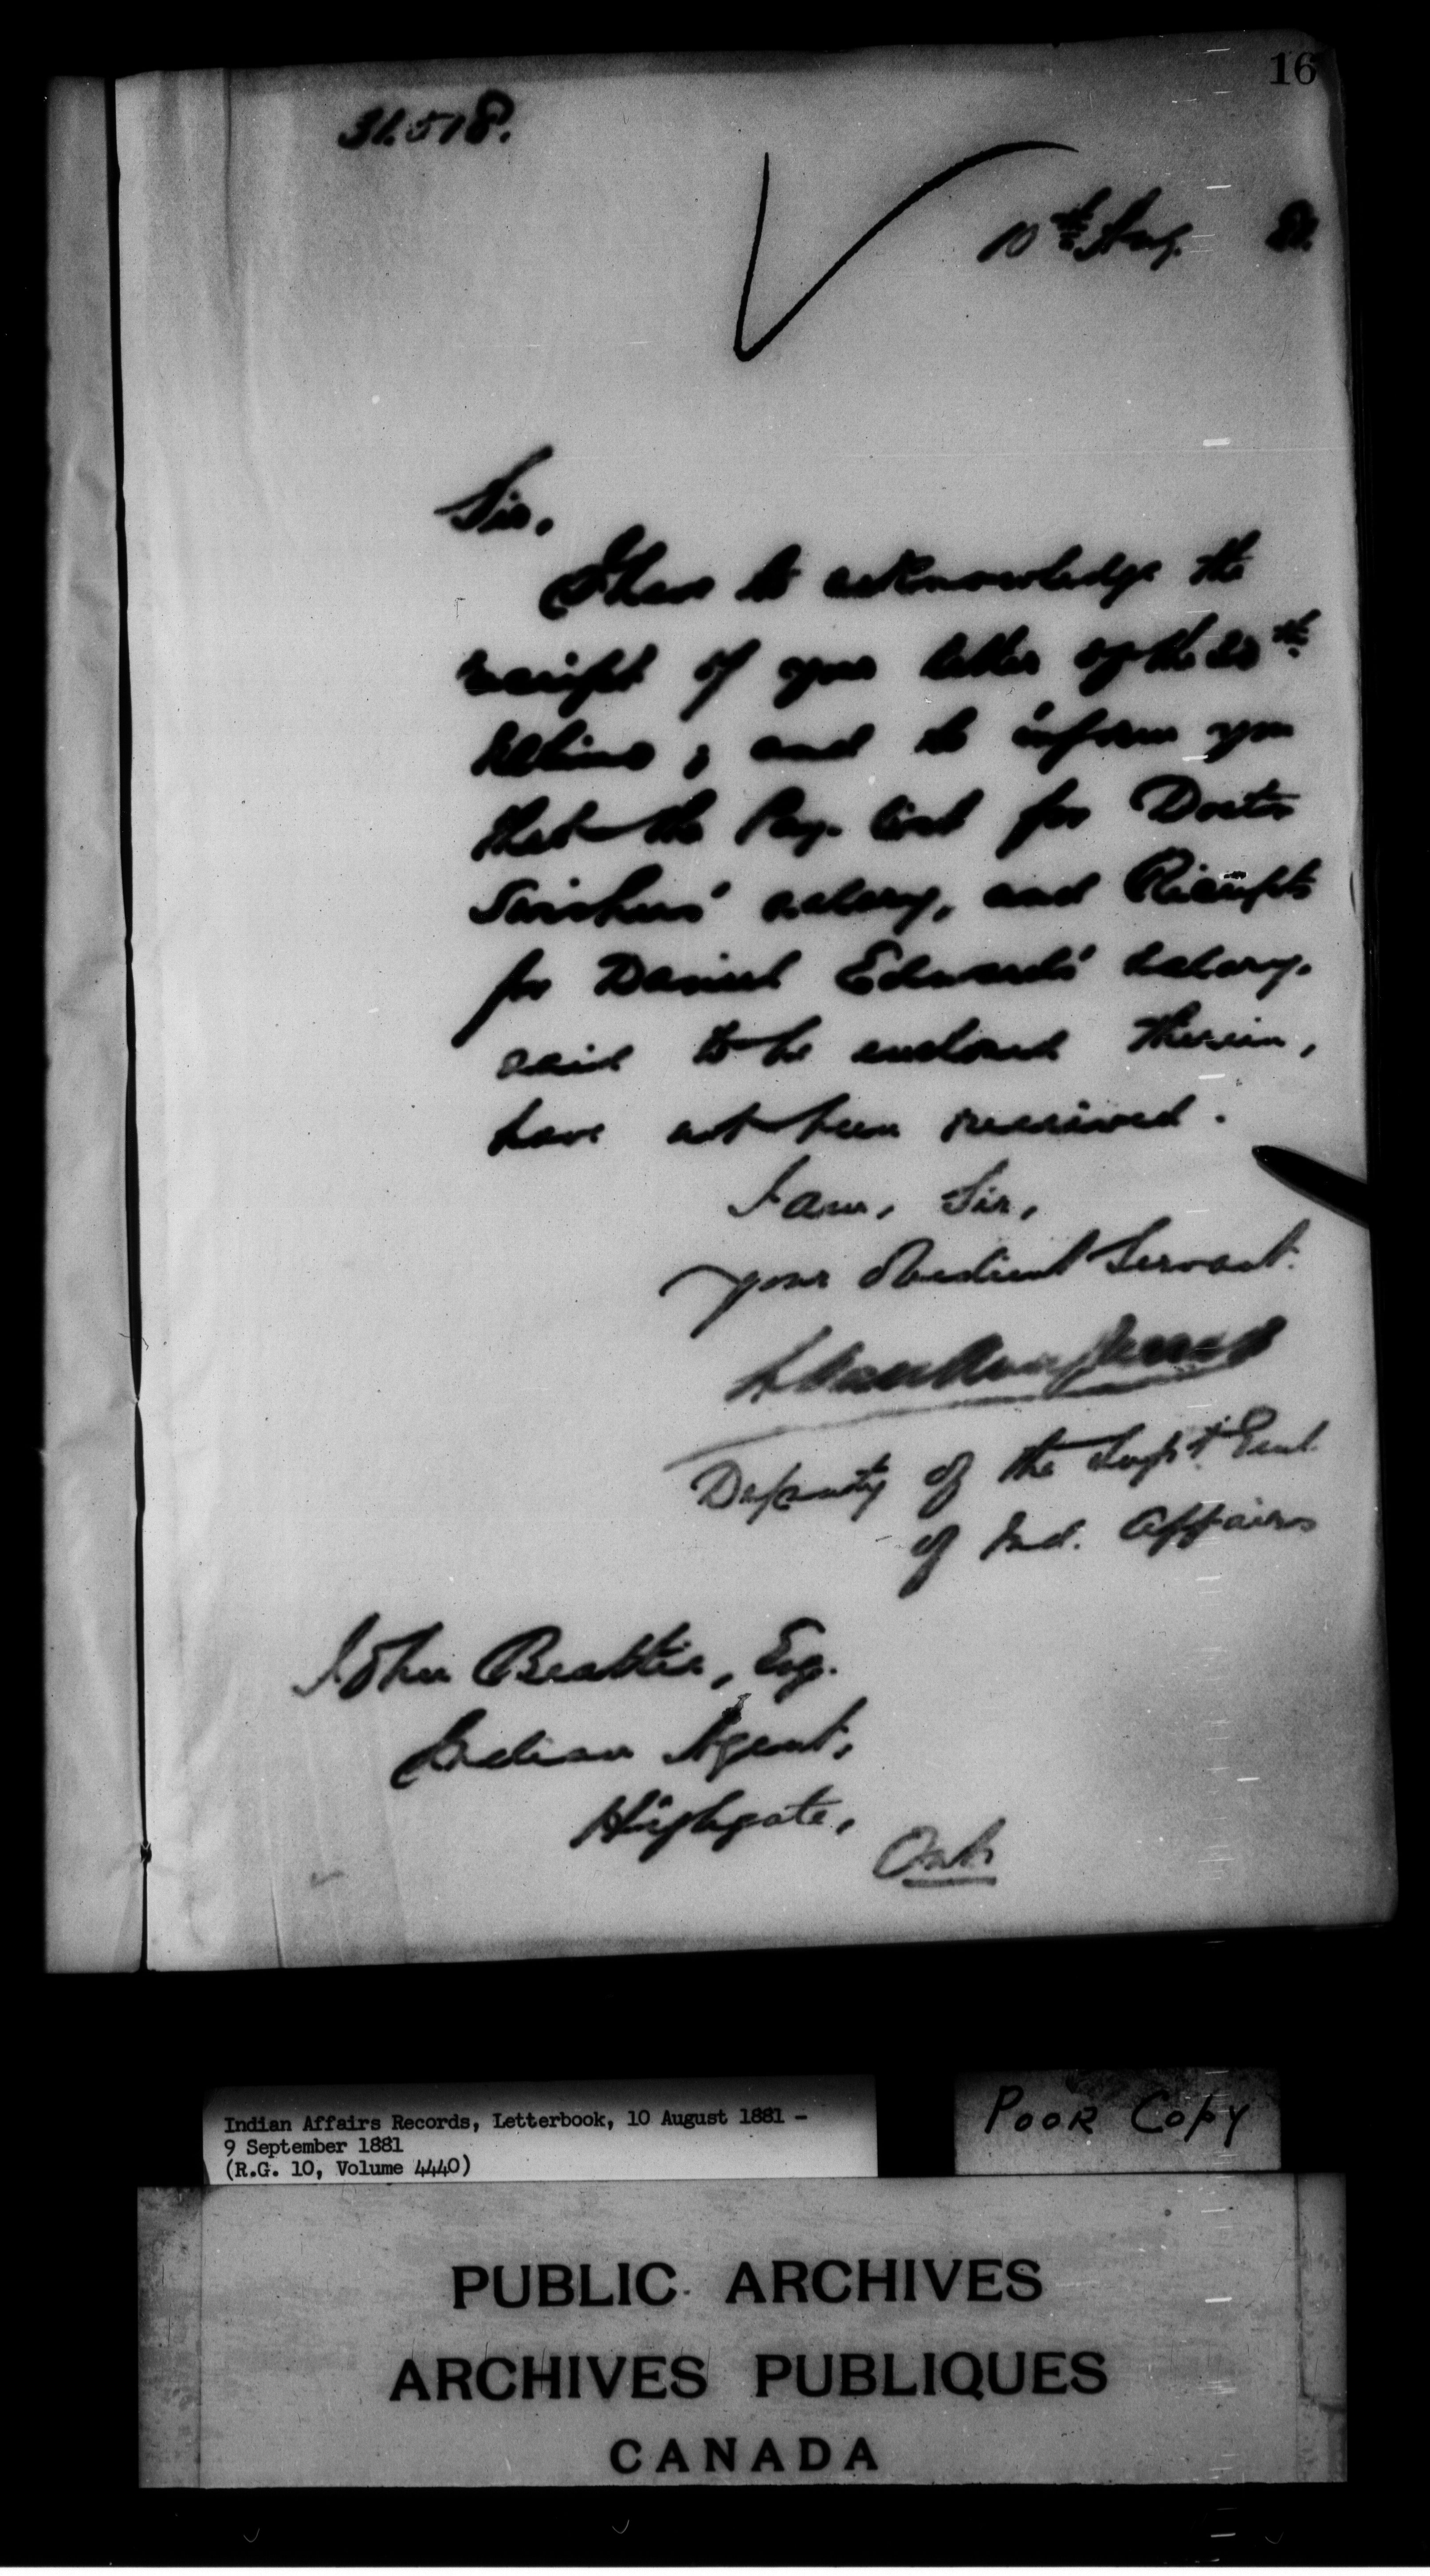 16
31.518.
10th Aug. 81.
Sir,
I have to acknowledge the
receipt of your letter of the 20th
Ultimo, and to inform you
that the Pay-list for Doctor
salary, and Receipts
for Daniel Edwards' salary,
said to be enclosed therein,
have not been received.
I am, Sir,
your Obedient Servant.
L. Vankoughnet
Deputy of the Supt. Genl.
of Ind. Affairs
John Beattie, Esq.
Indian Agent,
Highgate,
Ont.
Indian Affairs Records, Letterbook, 10 August 1881 -
9 September 1881
(R.G. 10, Volume 4440)
POOR COPY
PUBLIC ARCHIVES
ARCHIVES PUBLIQUES
CANADA